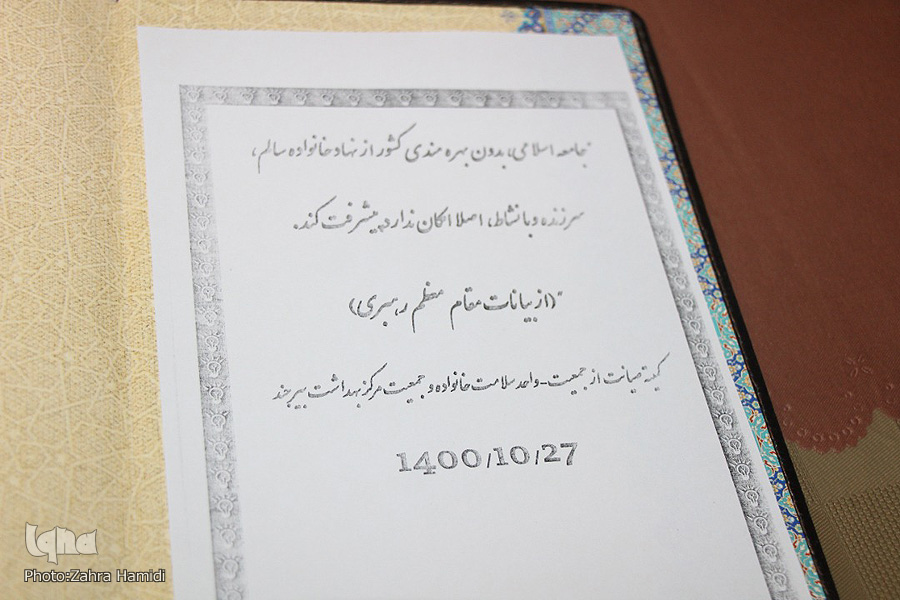 جامعه اسلامی، بدون بهره مندی کشور از نهاد خانواده سالم،
سرزنده و با نشاط، اصلا امکان ندارد پیشرفت کند.
"(از بیانات مقام معظم رهبری)
کمیته صیانت از جمعیت-واحد سلامت خانواده و جمعیت مرکز بهداشت بیرجند
1400/10/27
Iqna
Photo:Zahra Hamidi